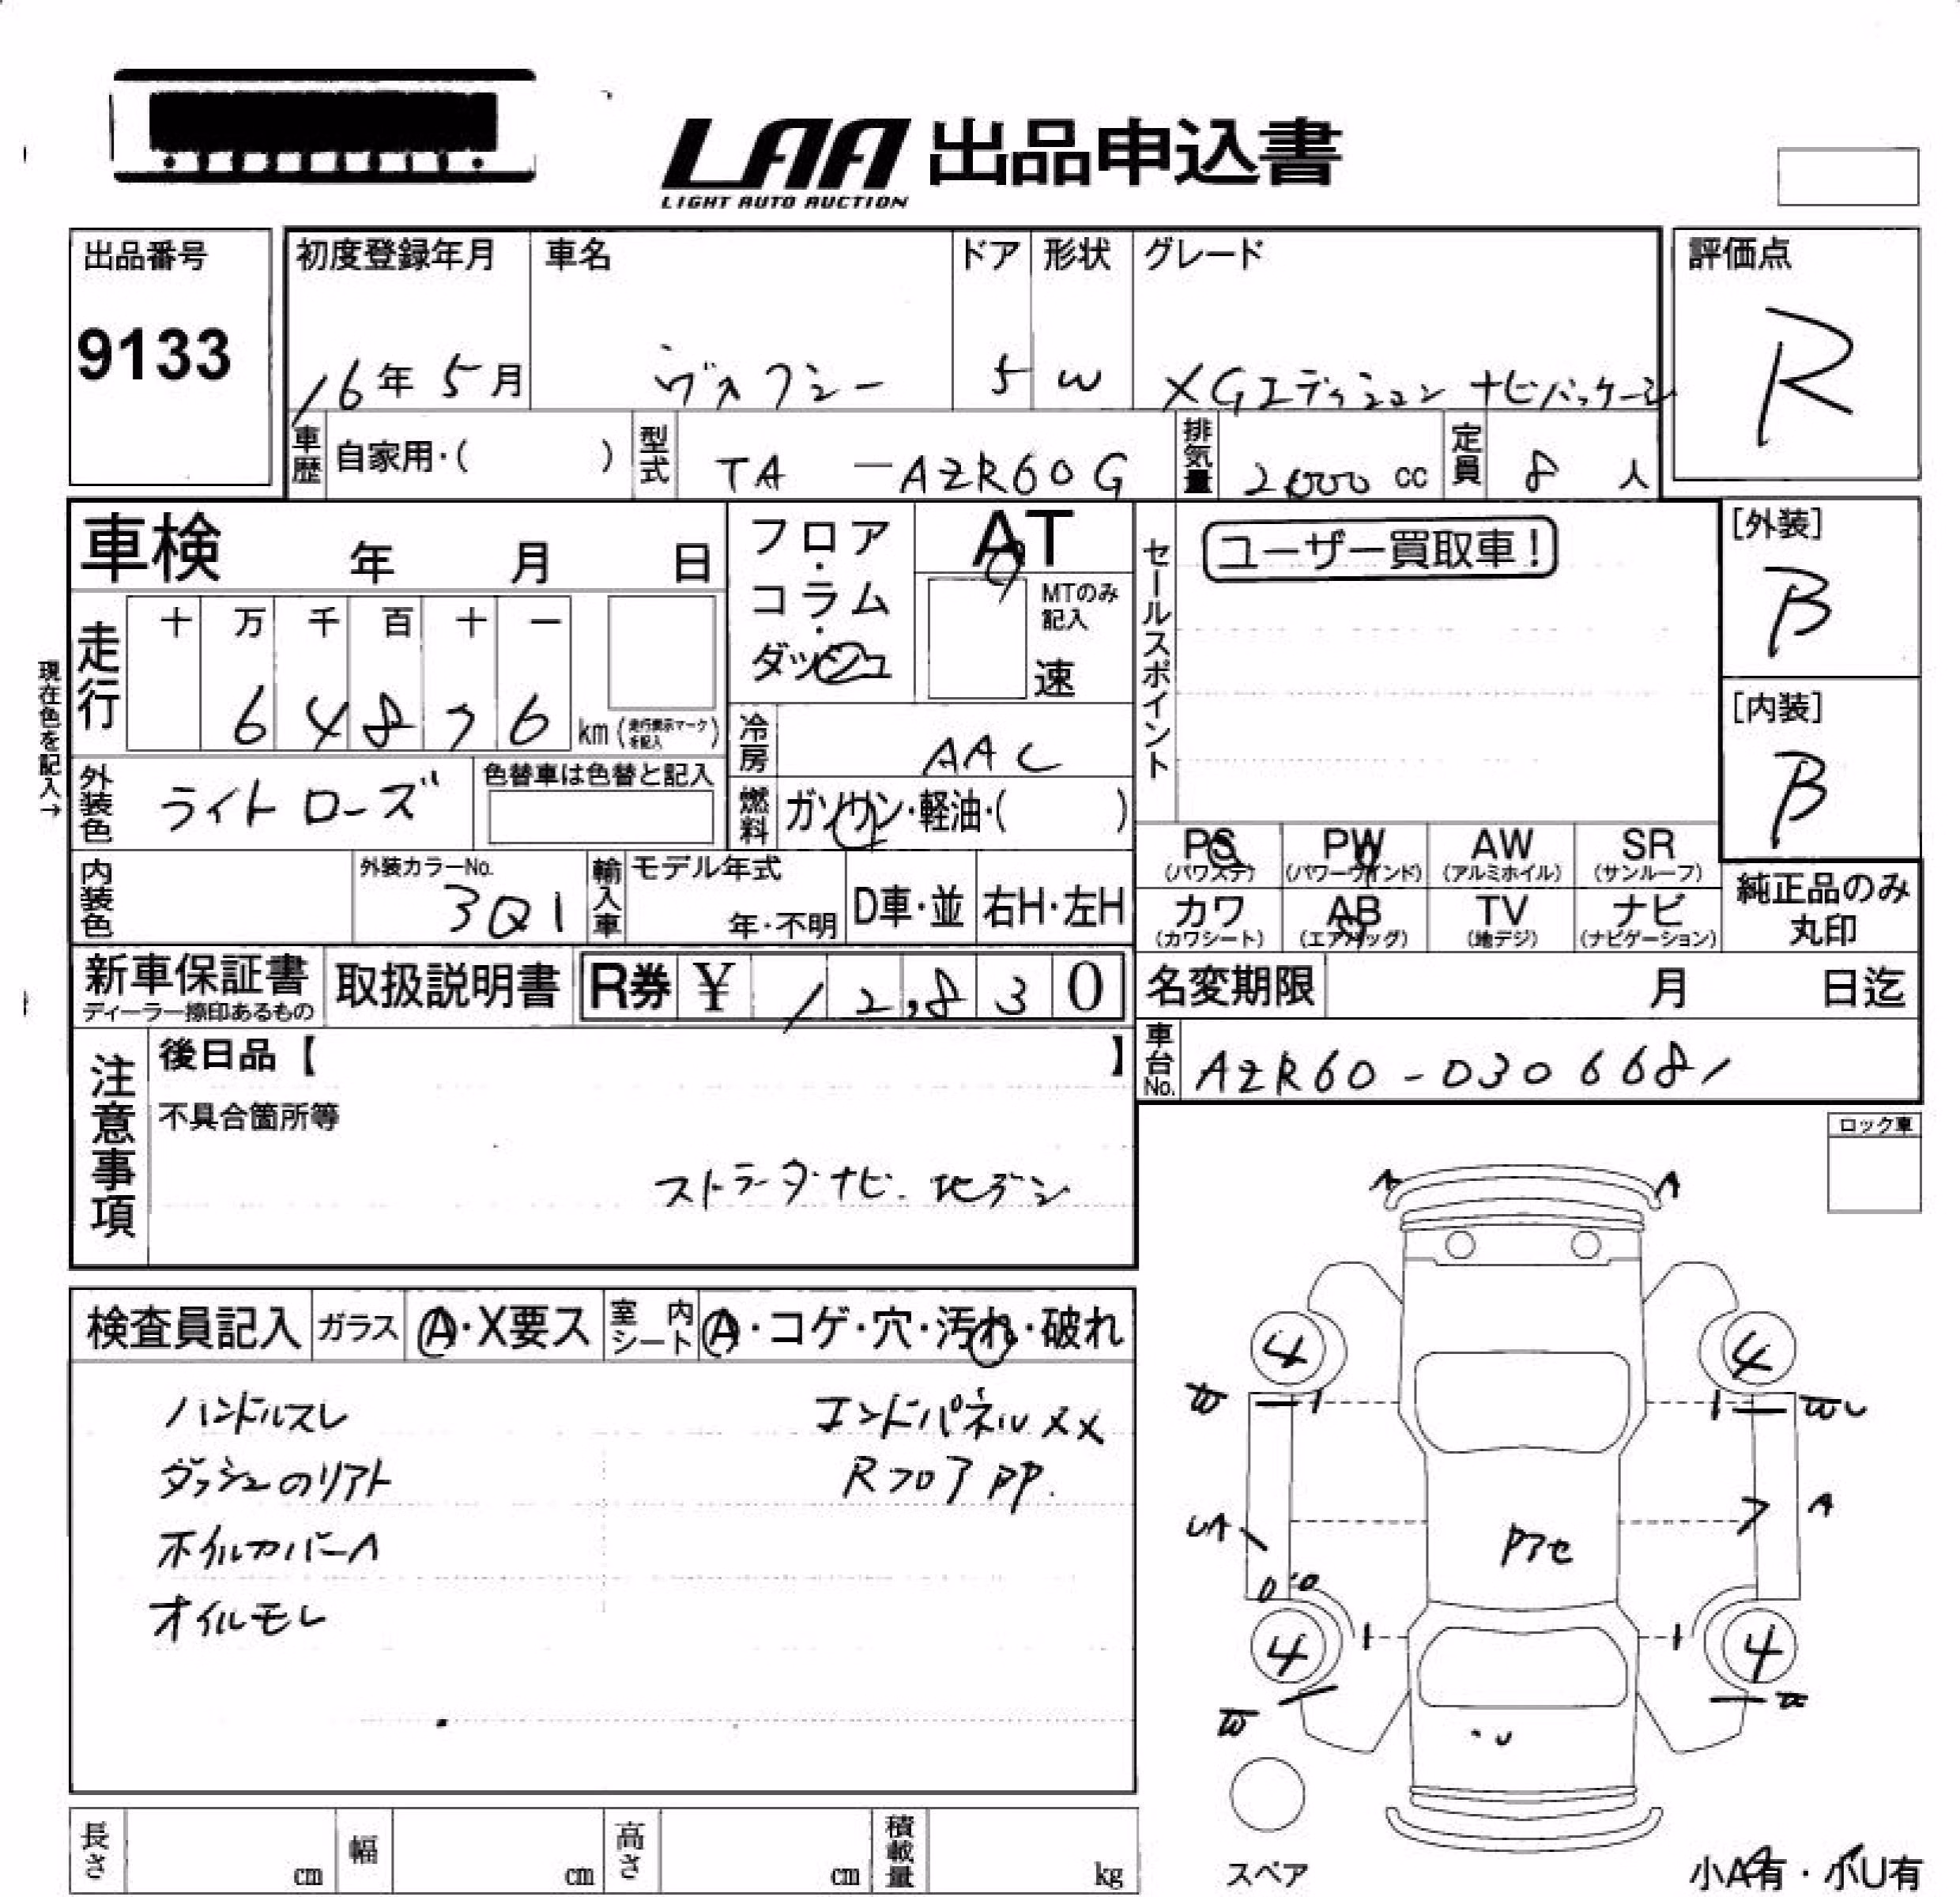 LAA 出品申込書
LIGHT AUTO AUCTION
出品番号
9133
初度登録年月
16年 5月
車名
ヴォクシー
ドア
5
形状
W
グレード
XGエディション ナビパッケージ
評価点
R
車歴
自家用・( )
型式
TA -AZR60G
排気量
2000 cc
定員
8 人
車検 年 月 日
フロア・コラム・ダッシュ
AT
MTのみ記入
速
セールスポイント
ユーザー買取車!
[外装]
B
[内装]
B
現在色を記入→
走行
十 万 千 百 十 一
6 4 8 7 6 km (走行表示マークを記入)
冷房
AAC
外装色
ライトローズ
色替車は色替と記入
燃料
ガソリン・軽油・( )
PS (パワステ)
PW (パワーウインド)
AW (アルミホイル)
SR (サンルーフ)
カワ (カワシート)
AB (エアバッグ)
TV (地デジ)
ナビ (ナビゲーション)
純正品のみ丸印
内装色
外装カラーNo.
3Q1
輸入車
モデル年式
年・不明
D車・並
右H・左H
新車保証書
ディーラー捺印あるもの
取扱説明書
R券 ¥ 12,830
名変期限 月 日迄
車台No.
AZR60-0306681
注意事項
後日品【 】
不具合箇所等
ストラーダナビ. 地デジ
ロック車
検査員記入
ガラス
A・X要ス
室内シート
A・コゲ・穴・汚れ・破れ
ハンドルスレ
エンドパネルXX
ダッシュのリアト
RフロアPP.
ホイルカバーA
オイルモレ
A A
4 4
W W
UA A
Pアセ
4 4
W
U
スペア
小A有・小U有
長さ cm
幅 cm
高さ cm
積載量 kg